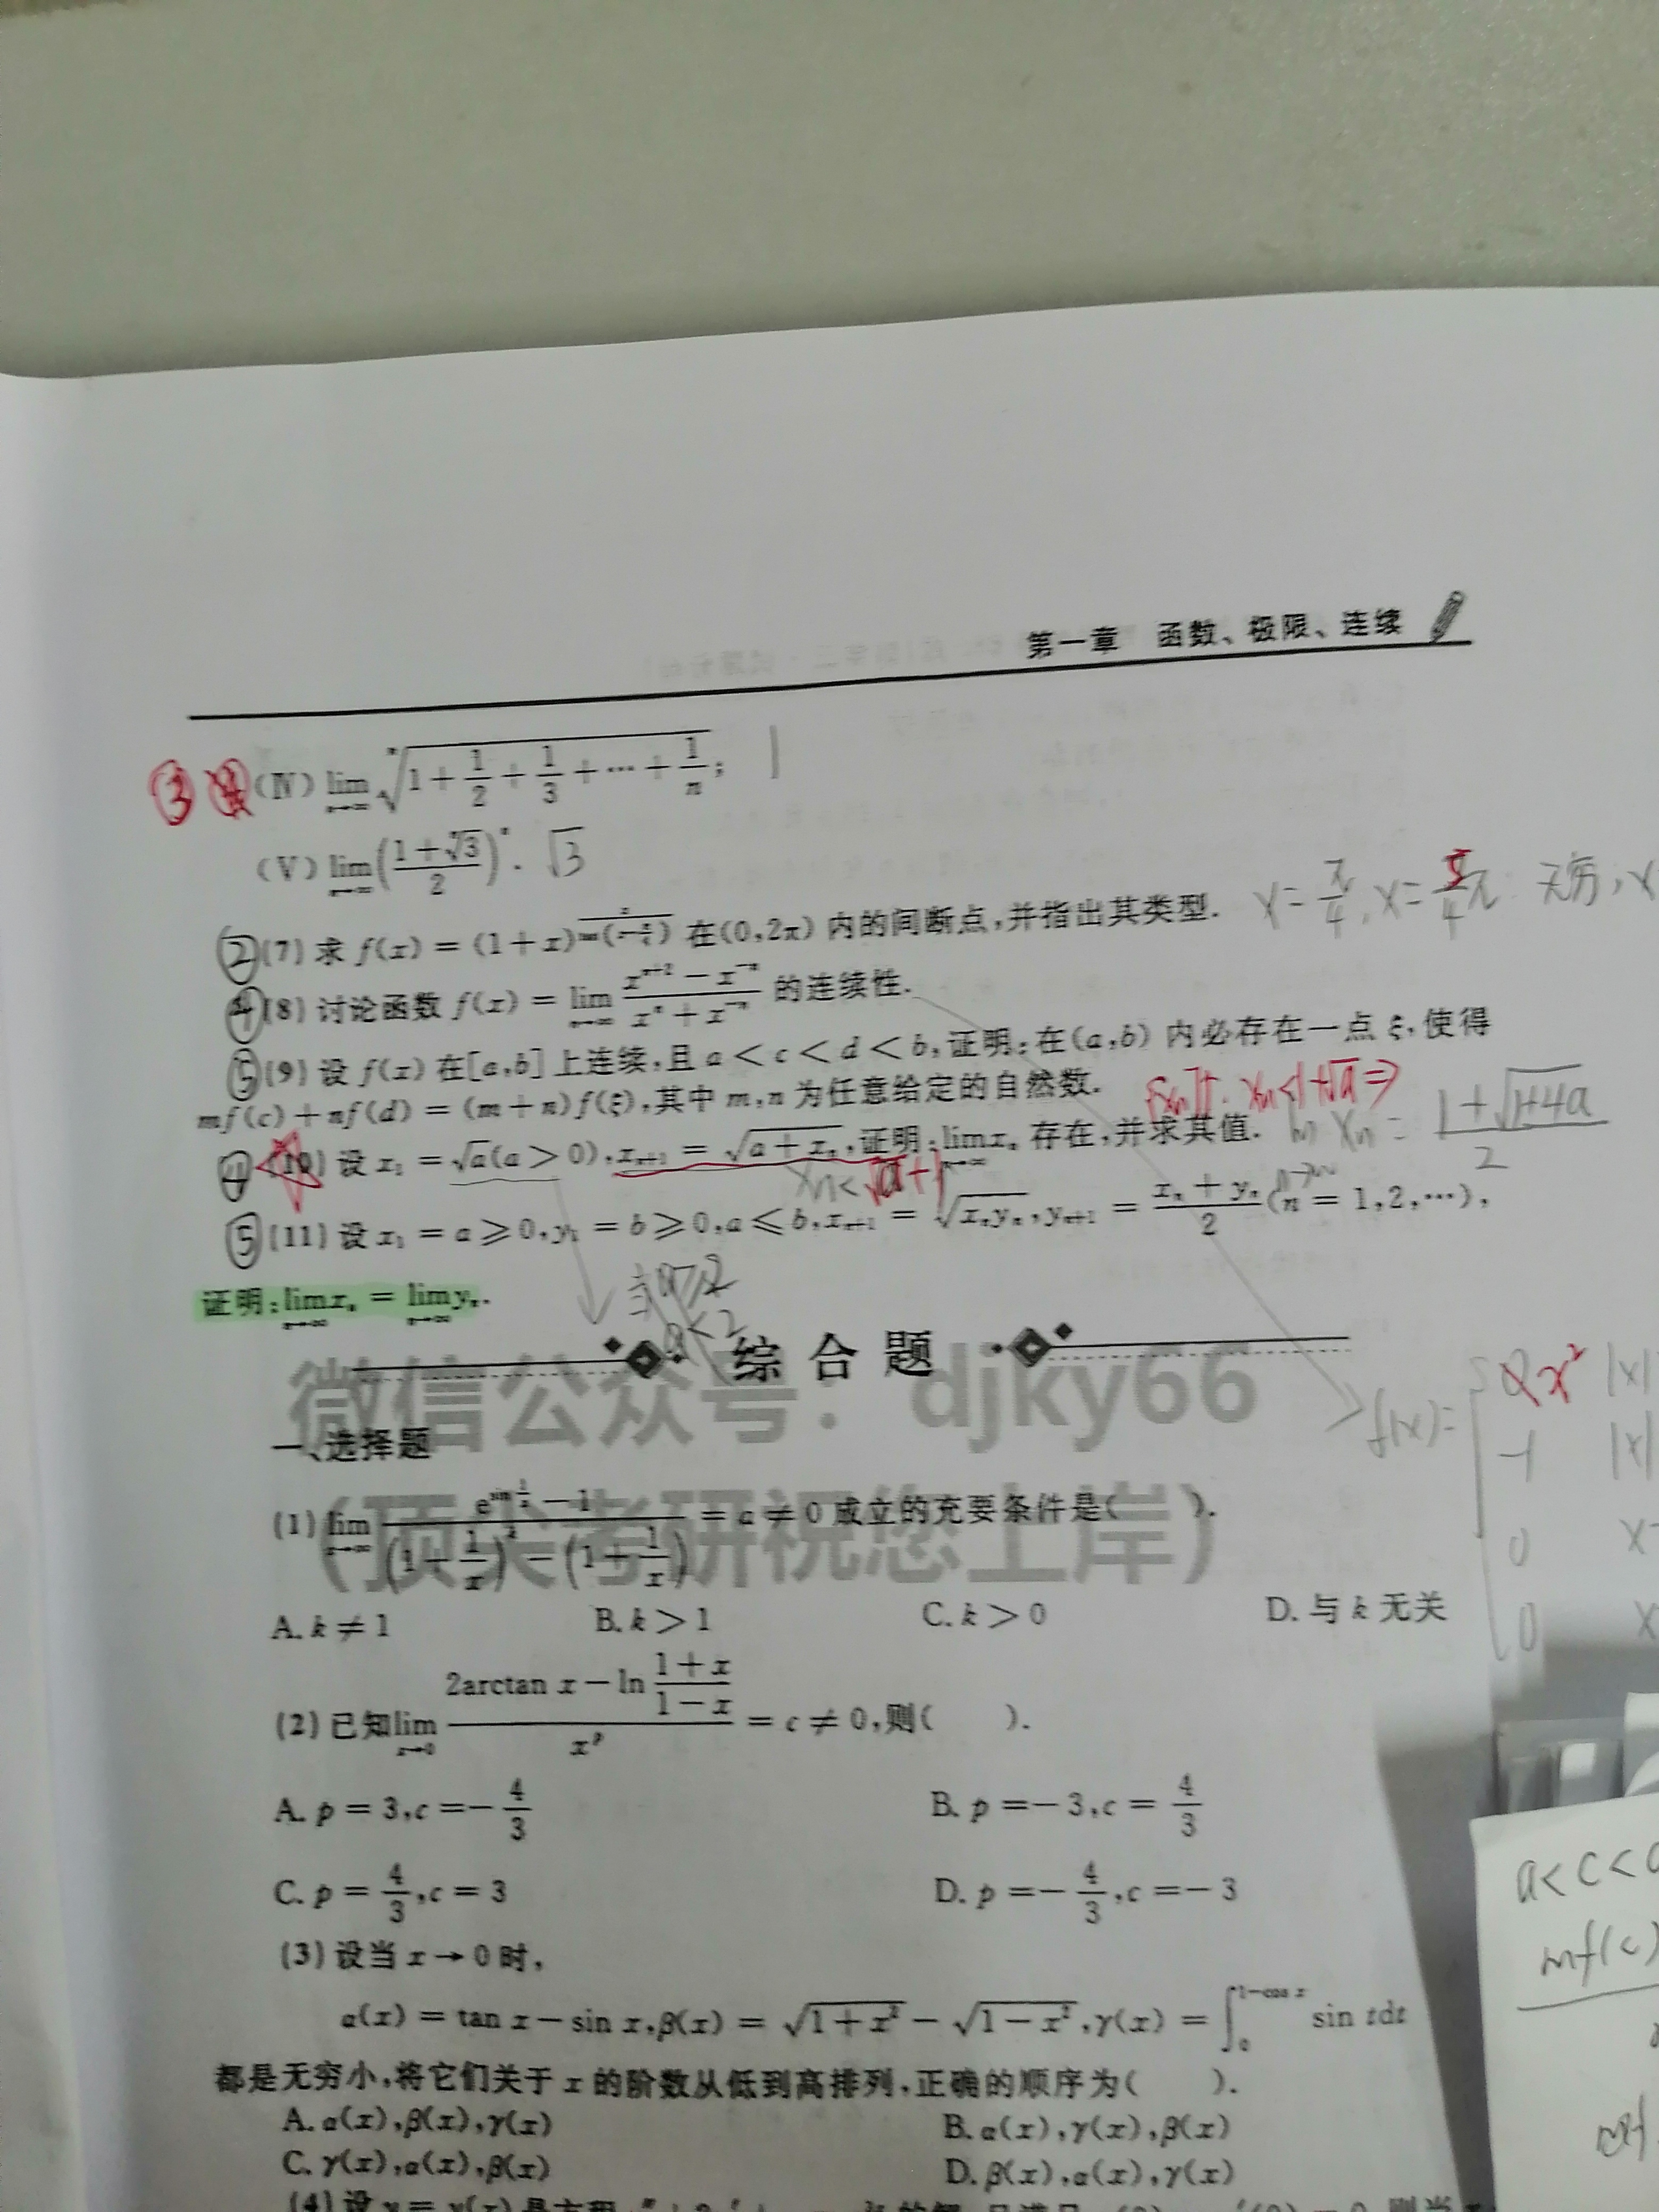 第一章 函数、极限、连续
③ (Ⅳ) lim n→∞ ⁿ√(1 + 1/2 + 1/3 + ⋯ + 1/n); 1
(Ⅴ) lim n→∞ ((1 + ⁿ√3)/2)ⁿ. √3
② (7) 求 f(x) = (1 + x)^(x/tan(x − π/4)) 在(0,2π) 内的间断点,并指出其类型. x = π/4, x = 5/4 π 无穷, x
④ (8) 讨论函数 f(x) = lim n→∞ (xⁿ⁺² − x⁻ⁿ)/(xⁿ + x⁻ⁿ) 的连续性.
⑤ (9) 设 f(x) 在[a,b] 上连续,且 a < c < d < b,证明:在(a,b) 内必存在一点 ξ,使得
mf(c) + nf(d) = (m + n)f(ξ),其中 m,n 为任意给定的自然数. {xn}↑. xn<1+√a ⇒
④ (10) 设 x₁ = √a(a > 0),xₙ₊₁ = √(a + xₙ),证明:lim n→∞ xₙ 存在,并求其值. lim n→∞ xn = (1+√(1+4a))/2
xn<√a+1
⑤ (11) 设 x₁ = a ⩾ 0,y₁ = b ⩾ 0,a ⩽ b,xₙ₊₁ = √(xₙyₙ),yₙ₊₁ = (xₙ + yₙ)/2 (n = 1,2,⋯),
证明:lim n→∞ xₙ = lim n→∞ yₙ.
综合题
微信公众号:djky66
(顶尖考研祝您上岸)
f(x)=
x² |x|
-1 |x|
0 x
0 x
一、选择题
(1) lim x→∞ (e^(sin 1/x) − 1)/((1 + 1/x)^k − (1 + 1/x)) = a ≠ 0 成立的充要条件是( ).
A. k ≠ 1 B. k > 1 C. k > 0 D. 与 k 无关
(2) 已知 lim x→0 (2arctan x − ln (1 + x)/(1 − x))/x^p = c ≠ 0,则( ).
A. p = 3,c = − 4/3 B. p = − 3,c = 4/3
C. p = 4/3,c = 3 D. p = − 4/3,c = − 3
(3) 设当 x → 0 时,
α(x) = tan x − sin x,β(x) = √(1 + x²) − √(1 − x²),γ(x) = ∫₀^(1−cos x) sin tdt
都是无穷小,将它们关于 x 的阶数从低到高排列,正确的顺序为( ).
A. α(x),β(x),γ(x) B. α(x),γ(x),β(x)
C. γ(x),α(x),β(x) D. β(x),α(x),γ(x)
a<c<
mf(c)